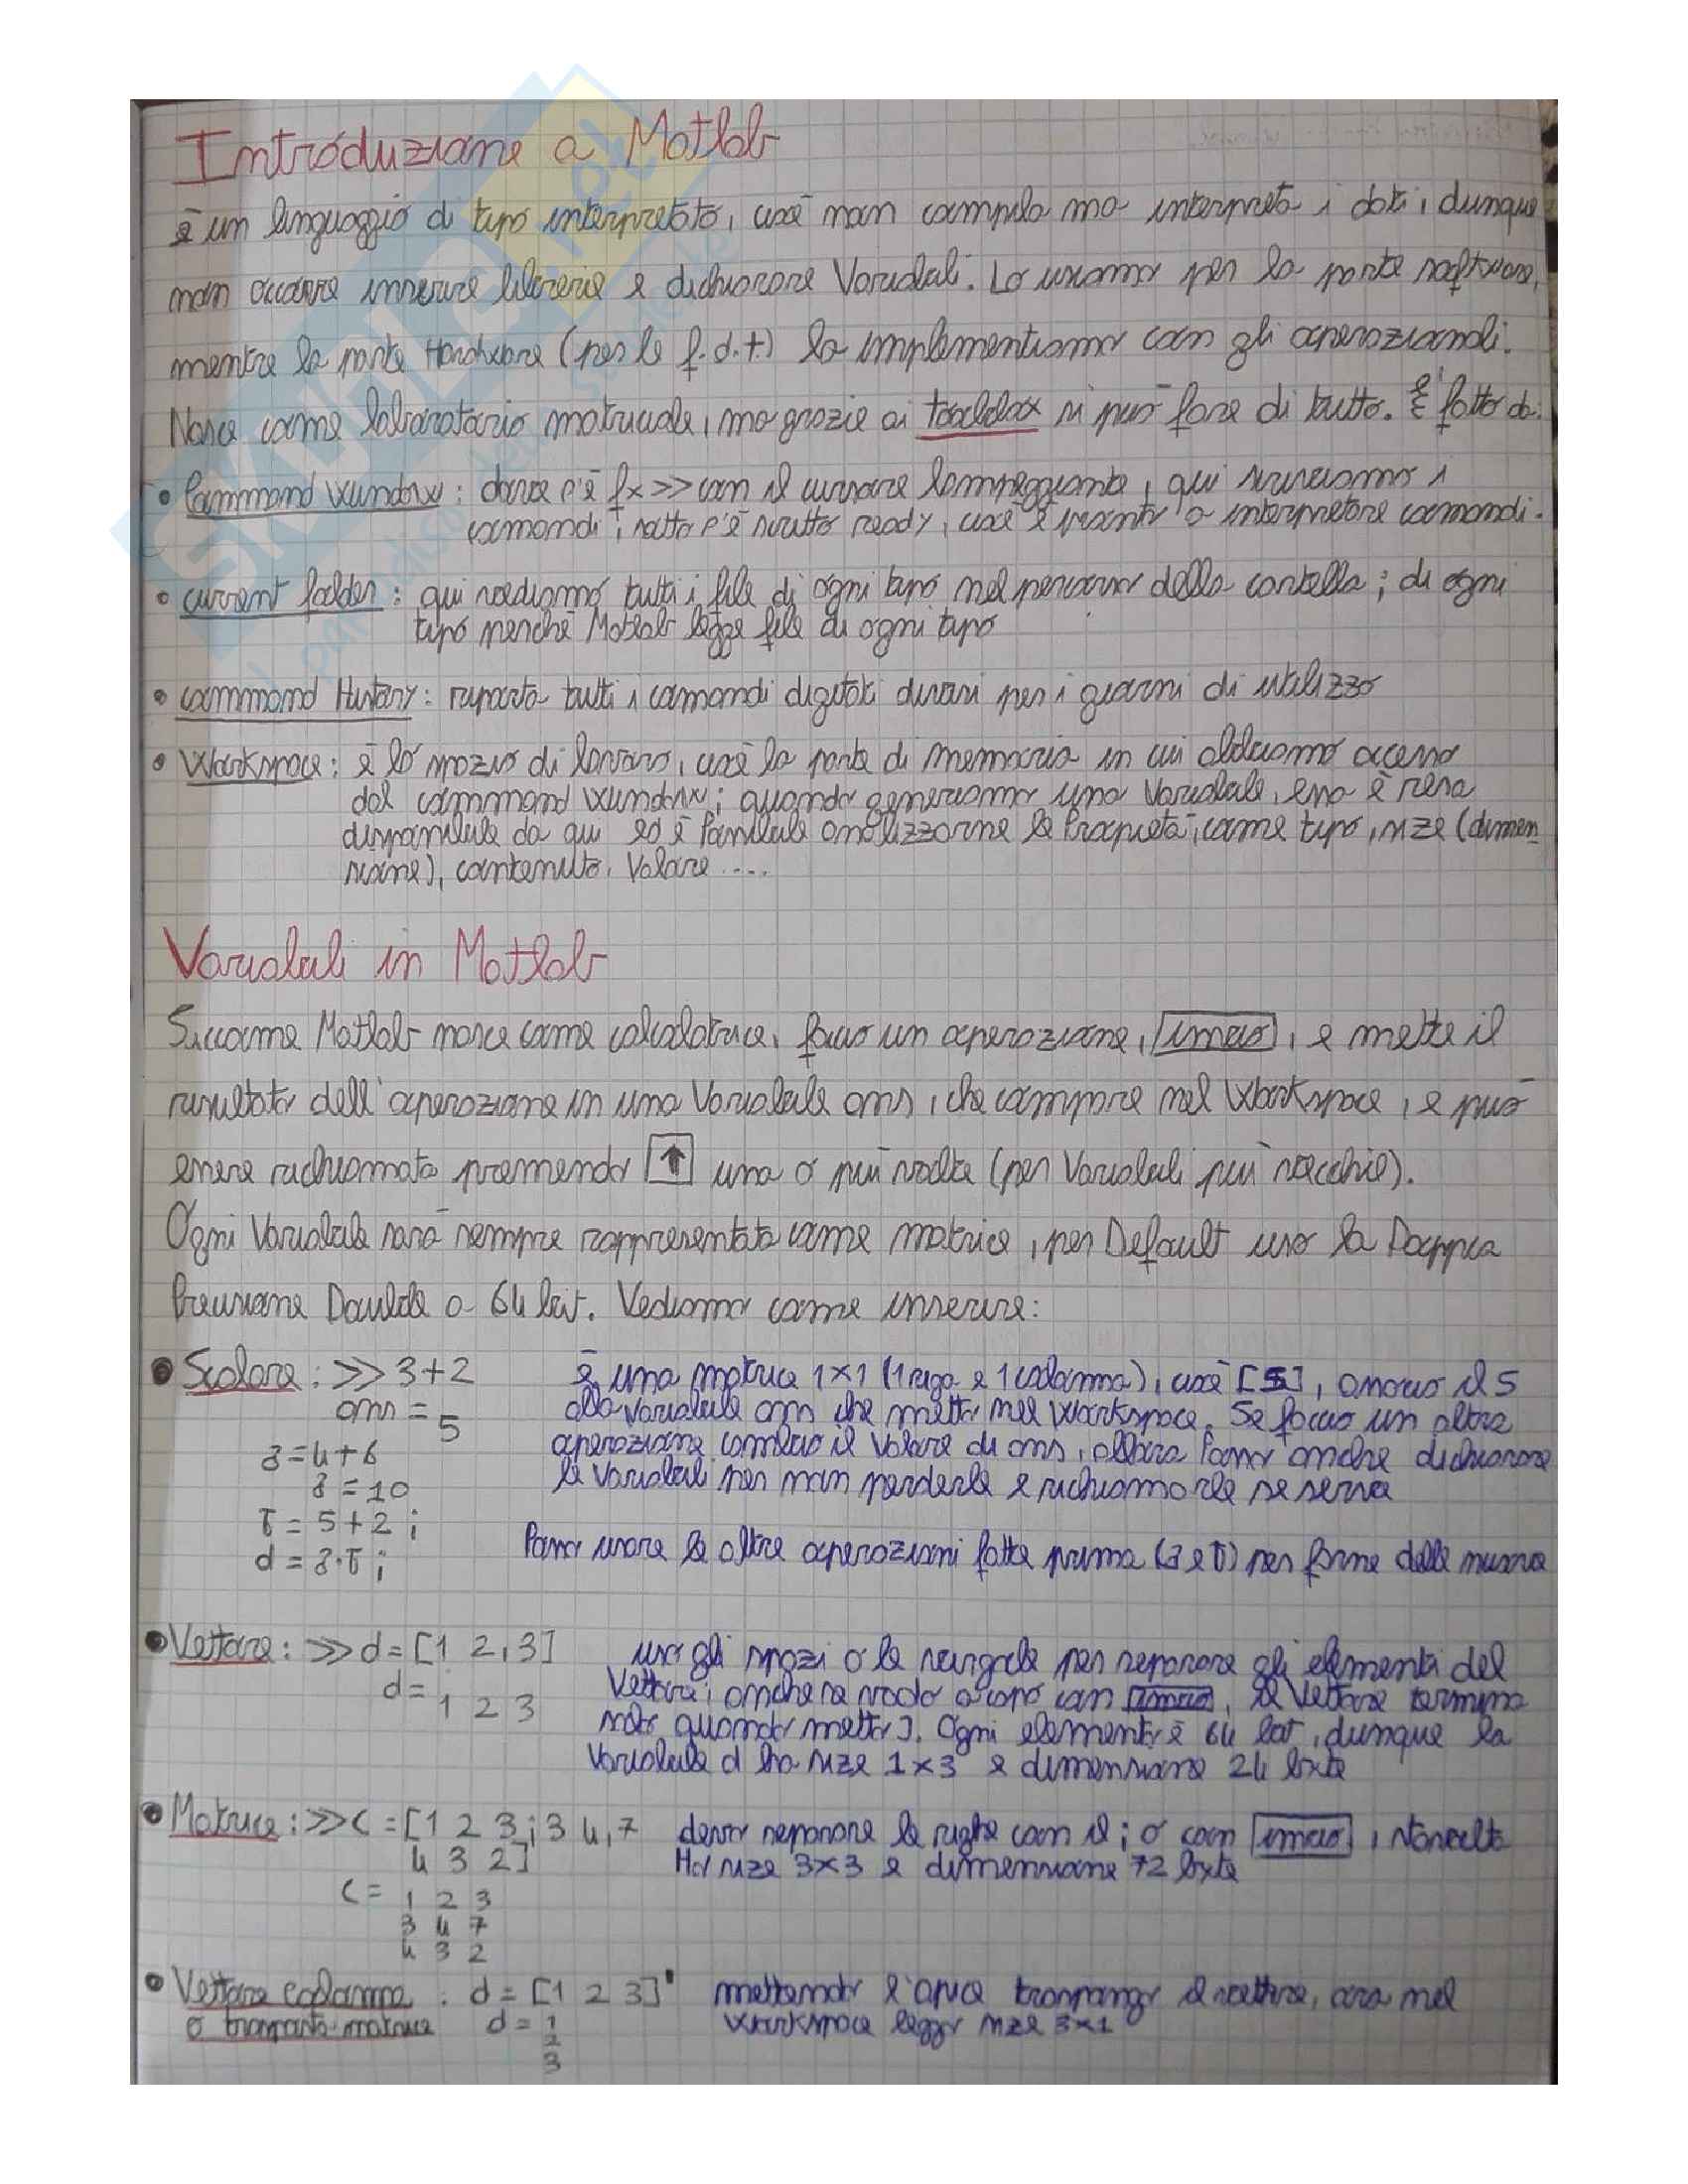 Introduzione a Matlab
è un linguaggio di tipo interpretato, cioè non compila ma interpreta i dati, dunque
non occorre inserire librerie e dichiarare Variabili. Lo usiamo per la parte software,
mentre la parte Hardware (per le f.d.t.) la implementiamo con gli operazionali.
Nasce come laboratorio matriciale, ma grazie ai toolbox si può fare di tutto. È fatto da:
• Command window: dove c'è fx >> con il cursore lampeggiante, qui scriviamo i
comandi, sotto c'è scritto ready, cioè è pronto a interpretare comandi.
• current folder: qui vediamo tutti i file di ogni tipo nel percorso della cartella; di ogni
tipo perché Matlab legge file di ogni tipo
• command History: riporta tutti i comandi digitati divisi per i giorni di utilizzo
• Workspace: è lo spazio di lavoro, cioè la parte di memoria in cui abbiamo accesso
dal command window; quando generiamo una Variabile, essa è resa
disponibile da qui ed è Possibile analizzarne le Proprietà, come tipo, size (dimen-
sione), contenuto, Valore ....
Variabili in Matlab
Siccome Matlab nasce come calcolatrice, faccio un operazione, invio, e mette il
risultato dell'operazione in una Variabile ans, che compare nel Workspace, e può
essere richiamata premendo ↑ una o più volte (per Variabili più vecchie).
Ogni Variabile sarà sempre rappresentata come matrice, per Default uso la Doppia
Precisione Double a 64 bit. Vediamo come inserire:
• Scalare: >> 3+2 è una matrice 1×1 (1 riga e 1 colonna), cioè [5], associo il 5
ans = 5 alla variabile ans che metto nel Workspace. Se faccio un altra
a=4+6 operazione cambio il Valore di ans, allora Posso anche dichiarare
a=10 le Variabili per non perderle e richiamarle se serve
b=5+2;
d=a·b; Posso usare le altre operazioni fatte prima (a e b) per farne delle nuove
• Vettore: >> d=[1 2,3] uso gli spazi o le virgole per separare gli elementi del
d= 1 2 3 Vettore; anche se vado a capo con invio, il Vettore termina
solo quando metto ]. Ogni elemento è 64 bit, dunque la
Variabile d ha size 1×3 e dimensione 24 byte
• Matrice: >> C=[1 2 3;3 4,7 devo separare le righe con il ; o con invio,
4 3 2] Ho size 3×3 e dimensione 72 byte
C= 1 2 3
3 4 7
4 3 2
• Vettore colonna : d=[1 2 3]' mettendo l'apice traspongo il vettore, ora nel
o trasposta matrice d= 1 workspace leggo size 3×1
2
3
SKUOLA.net